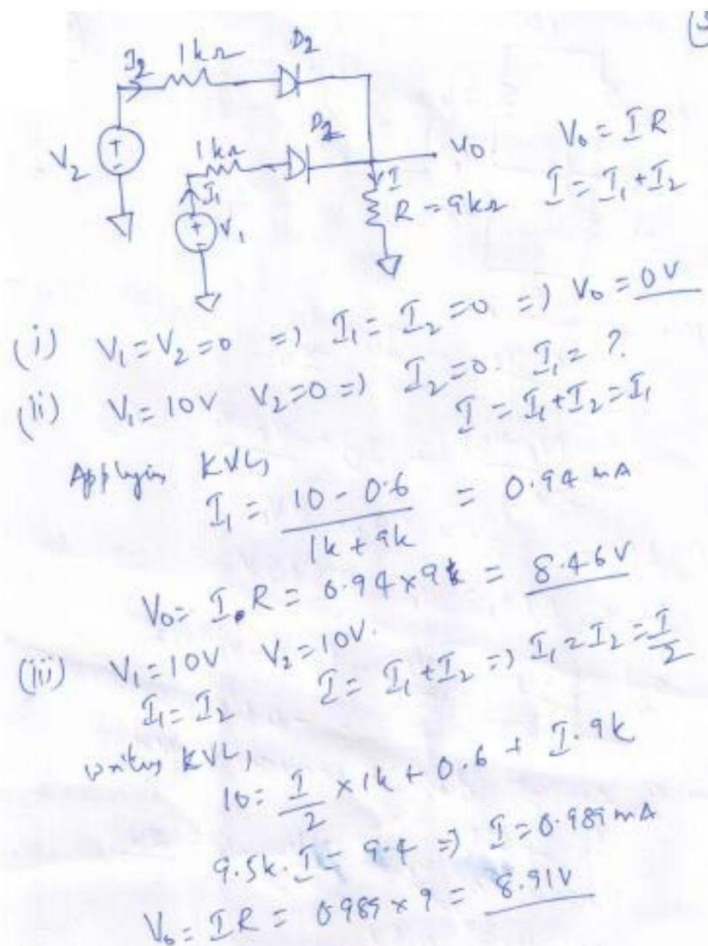 (3
I2 1kΩ D2
V2 + -
1kΩ D2
I1
+ - V1
V0
I
R = 9kΩ
V0 = IR
I = I1 + I2
(i) V1 = V2 = 0 => I1 = I2 = 0 => V0 = 0V
(ii) V1 = 10V V2 = 0 => I2 = 0. I1 = ?
I = I1 + I2 = I1
Applying KVL,
I1 = 10 - 0.6 / 1k + 9k = 0.94 mA
V0 = I. R = 0.94 × 9k = 8.46V
(iii) V1 = 10V V2 = 10V.
I1 = I2 I = I1 + I2 => I1 = I2 = I/2
writing KVL,
10 = I/2 × 1k + 0.6 + I. 9k
9.5k. I = 9.4 => I = 0.989 mA
V0 = IR = 0989 × 9 = 8.91V